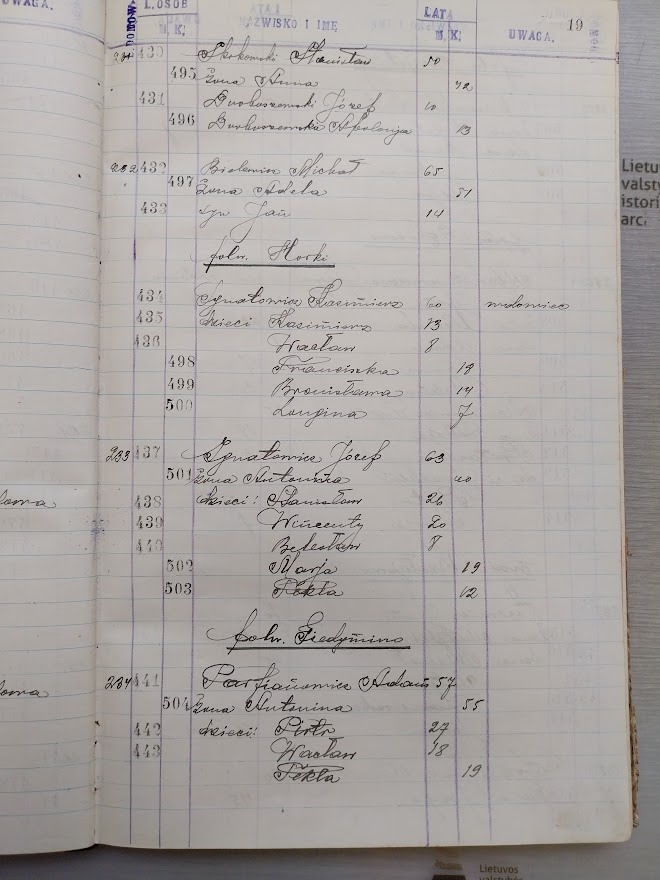 UWAGA.
L. OSÓB
M. K.
NAZWISKO I IMĘ
LATA
M. K.
UWAGA.
19
231 430 Skokowski Stanisław 50
495 żona Anna 42
431 Droboszewski Józef 10
496 Apolonja 13
232 432 Bielewicz Michał 65
497 żona Adela 51
433 syn Jan 14
folw. Horki
434 Ignatowicz Kazimierz 60
435 dzieci Kazimierz 13
436 Wacław 8
498 Franciszka 19
499 Bronisława 14
500 Longina 7
233 437 Ignatowicz Józef 63
501 żona Antonina 40
438 dzieci: Stanisław 26
439 Wincenty 20
440 Bolesław 8
502 Marja 19
503 Tekla 12
folw. Giedymino
234 441 Parfianowicz Adam 57
504 żona Antonina 55
442 dzieci: Piotr 27
443 Wacław 18
Tekla 19
Lietu
valst
istori
arc
Lietuvos
valstybės